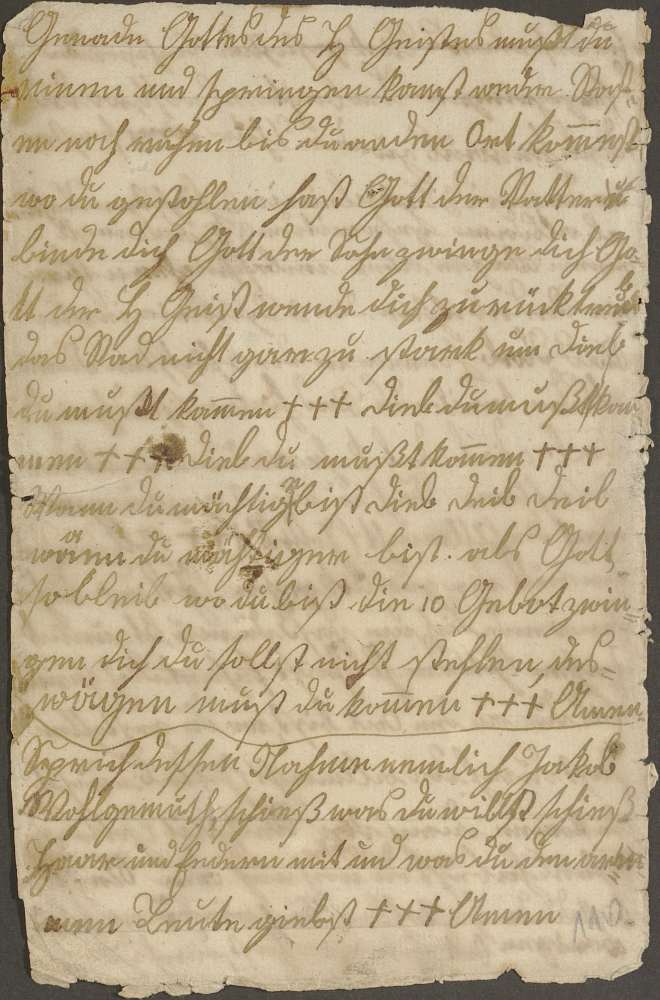 Genade Gottes des H Geistes must du
rinnen und springen kanst weder Rast=
en noch ruhen bis du an den Ort kommst
wo du gestohlen hast Gott der Vatter
binde dich Gott der Sohn zwinge dich Go=
tt der H Geist wende dich zurück
das Rad nicht gar zu starck um Dieb
du mußt kommen +++ Dieb du mußt kom
men +++ Dieb du mußt kommen +++
Wann du mächtiger bist Dieb Deib Deib
wann du mächtiger bist. als Gott
so bleib wo du bist die 10 Gebot zwin=
gen dich du sollst nicht stehlen, des=
wägen must du kommen +++ Amen
Sprich dessen Nahme nemlich Jakob
Wohlgemuth schieß was du willst schieß
Haar und Federn mit und was du den arm
men Leute giebst +++ Amen
110.